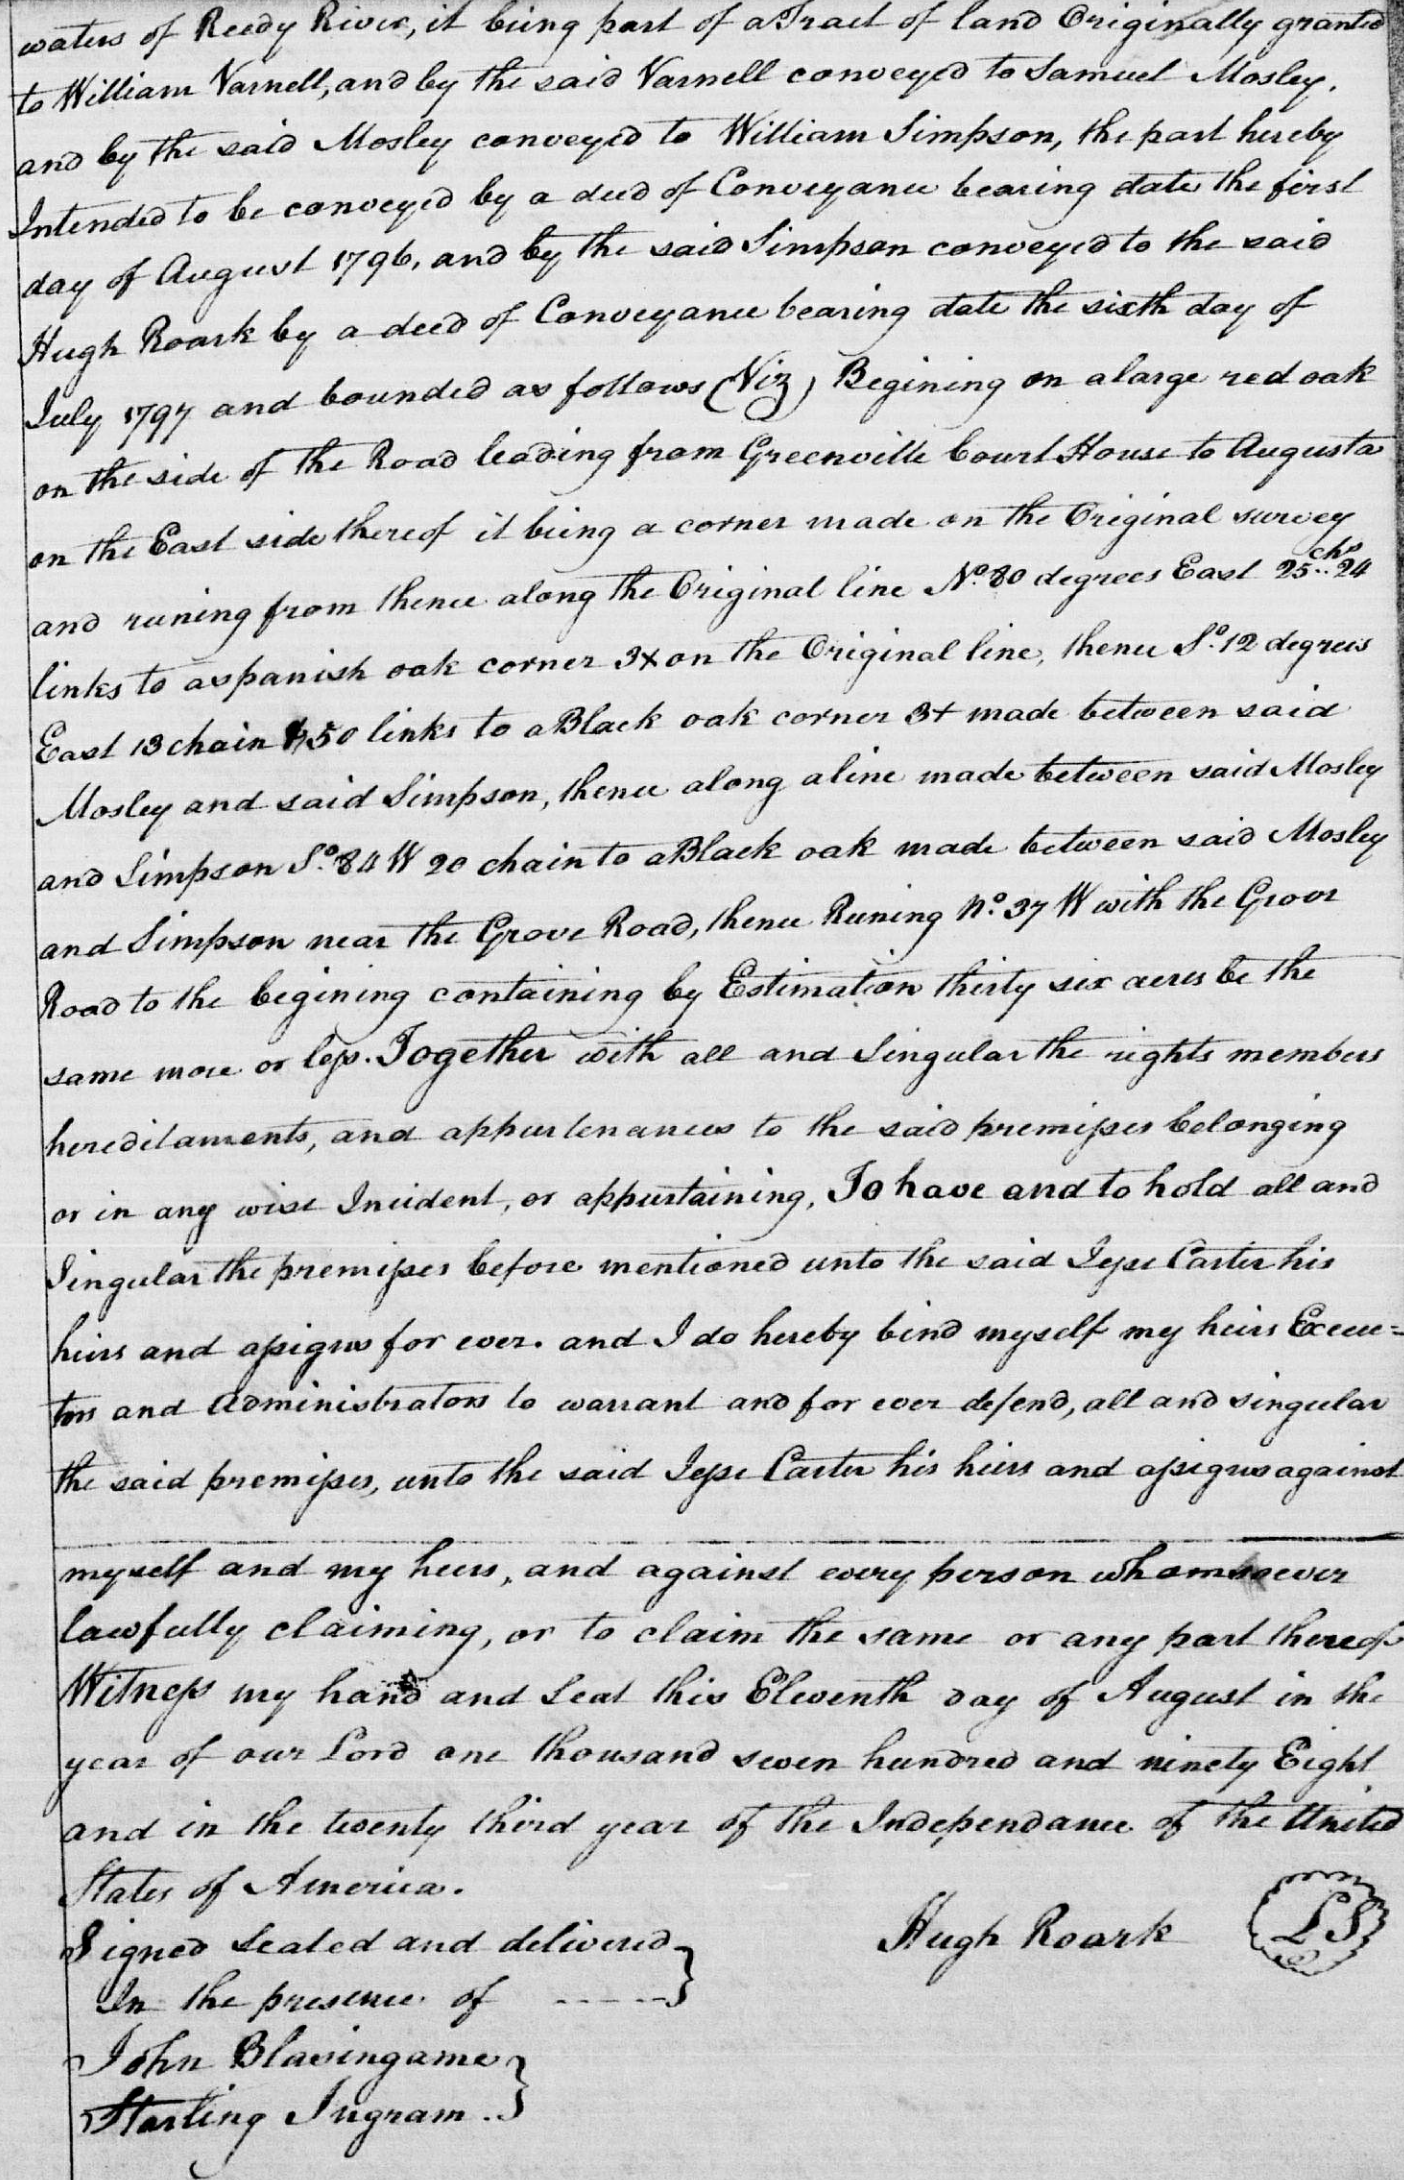 waters of Reedy River, it being part of a Tract of land Originally granted
to William Varnell, and by the said Varnell conveyed to Samuel Mosley,
and by the said Mosley conveyed to William Simpson, the part hereby
Intended to be conveyed by a deed of Conveyance bearing date the first
day of August 1796, and by the said Simpson conveyed to the said
Hugh Roark by a deed of Conveyance bearing date the sixth day of
July 1797 and bounded as follows (Viz) Begining on a large red oak
on the side of the Road leading from Greenville Court House to Augusta
on the East side thereof it being a corner made on the Original survey
and runing from thence along the Original line No. 80 degrees East 25 chs.. 24
links to a spanish oak corner 3x on the Original line, thence So. 12 degrees
East 13 chain & 50 links to a Black oak corner 3+ made between said
Mosley and said Simpson, thence along a line made between said Mosley
and Simpson So. 84 W 20 chain to a Black oak made between said Mosley
and Simpson near the Grove Road, thence Runing No. 37 W with the Grove
Road to the begining containing by Estimation thirty six acres be the
same more or less. Together with all and Singular the rights members
hereditaments, and appurtenances to the said premises belonging
or in any wise Incident, or appurtaining, To have and to hold all and
Singular the premises before mentioned unto the said Jesse Carter his
heirs and assigns for ever. and I do hereby bind myself my heirs Execu=
tors and Administrators to warrant and for ever defend, all and singular
the said premises, unto the said Jesse Carter his heirs and assigns against
myself and my heirs, and against every person whomsoever
lawfully claiming, or to claim the same or any part thereof
Witness my hand and Seal this Eleventh day of August in the
year of our Lord one thousand seven hundred and ninety Eight
and in the twenty third year of the Independance of the United
States of America.
Signed Sealed and delivered
Hugh Roark LS
In the presence of -----
John Blasingame
Starling Ingram.